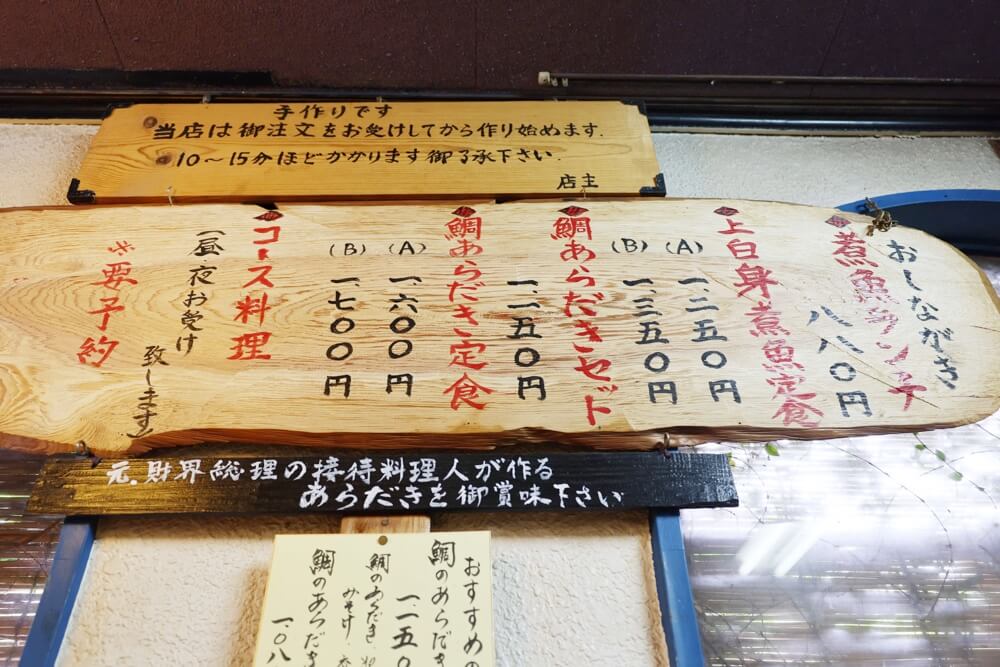 手作りです
当店は御注文をお受けしてから作り始めます.
◎10～15分ほどかかります御了承下さい.
店主
おしながき
煮魚ランチ
八八〇円
上白身煮魚定食
(A) 一.二五〇円
(B) 一.三五〇円
鯛あらだきセット
一.一五〇円
鯛あらだき定食
(A) 一.六〇〇円
(B) 一.七〇〇円
コース料理
(昼夜お受け致します)
※要予約
元.財界総理の接待料理人が作る
あらだきを御賞味下さい
おすすめの
鯛のあらだき
一一五〇
鯛のあらだき
みそ汁.
鯛のあらだき
一.〇八